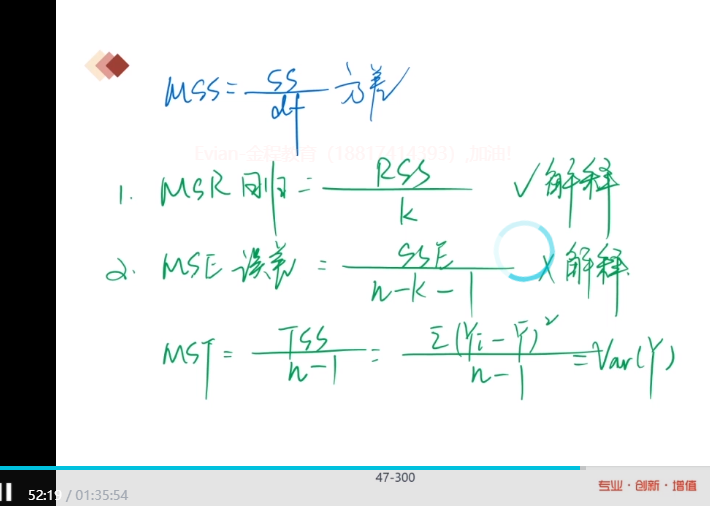 MSS = SS/df 方差
Evian-金程教育（18817414393）,加油!
1. MSR 回归 = RSS/k ✓解释
2. MSE 误差 = SSE/n-k-1 ×解释
MST = TSS/n-1 = Σ(Yi-Ȳ)²/n-1 = Var(Y)
47-300
专业·创新·增值
52:19 / 01:35:54